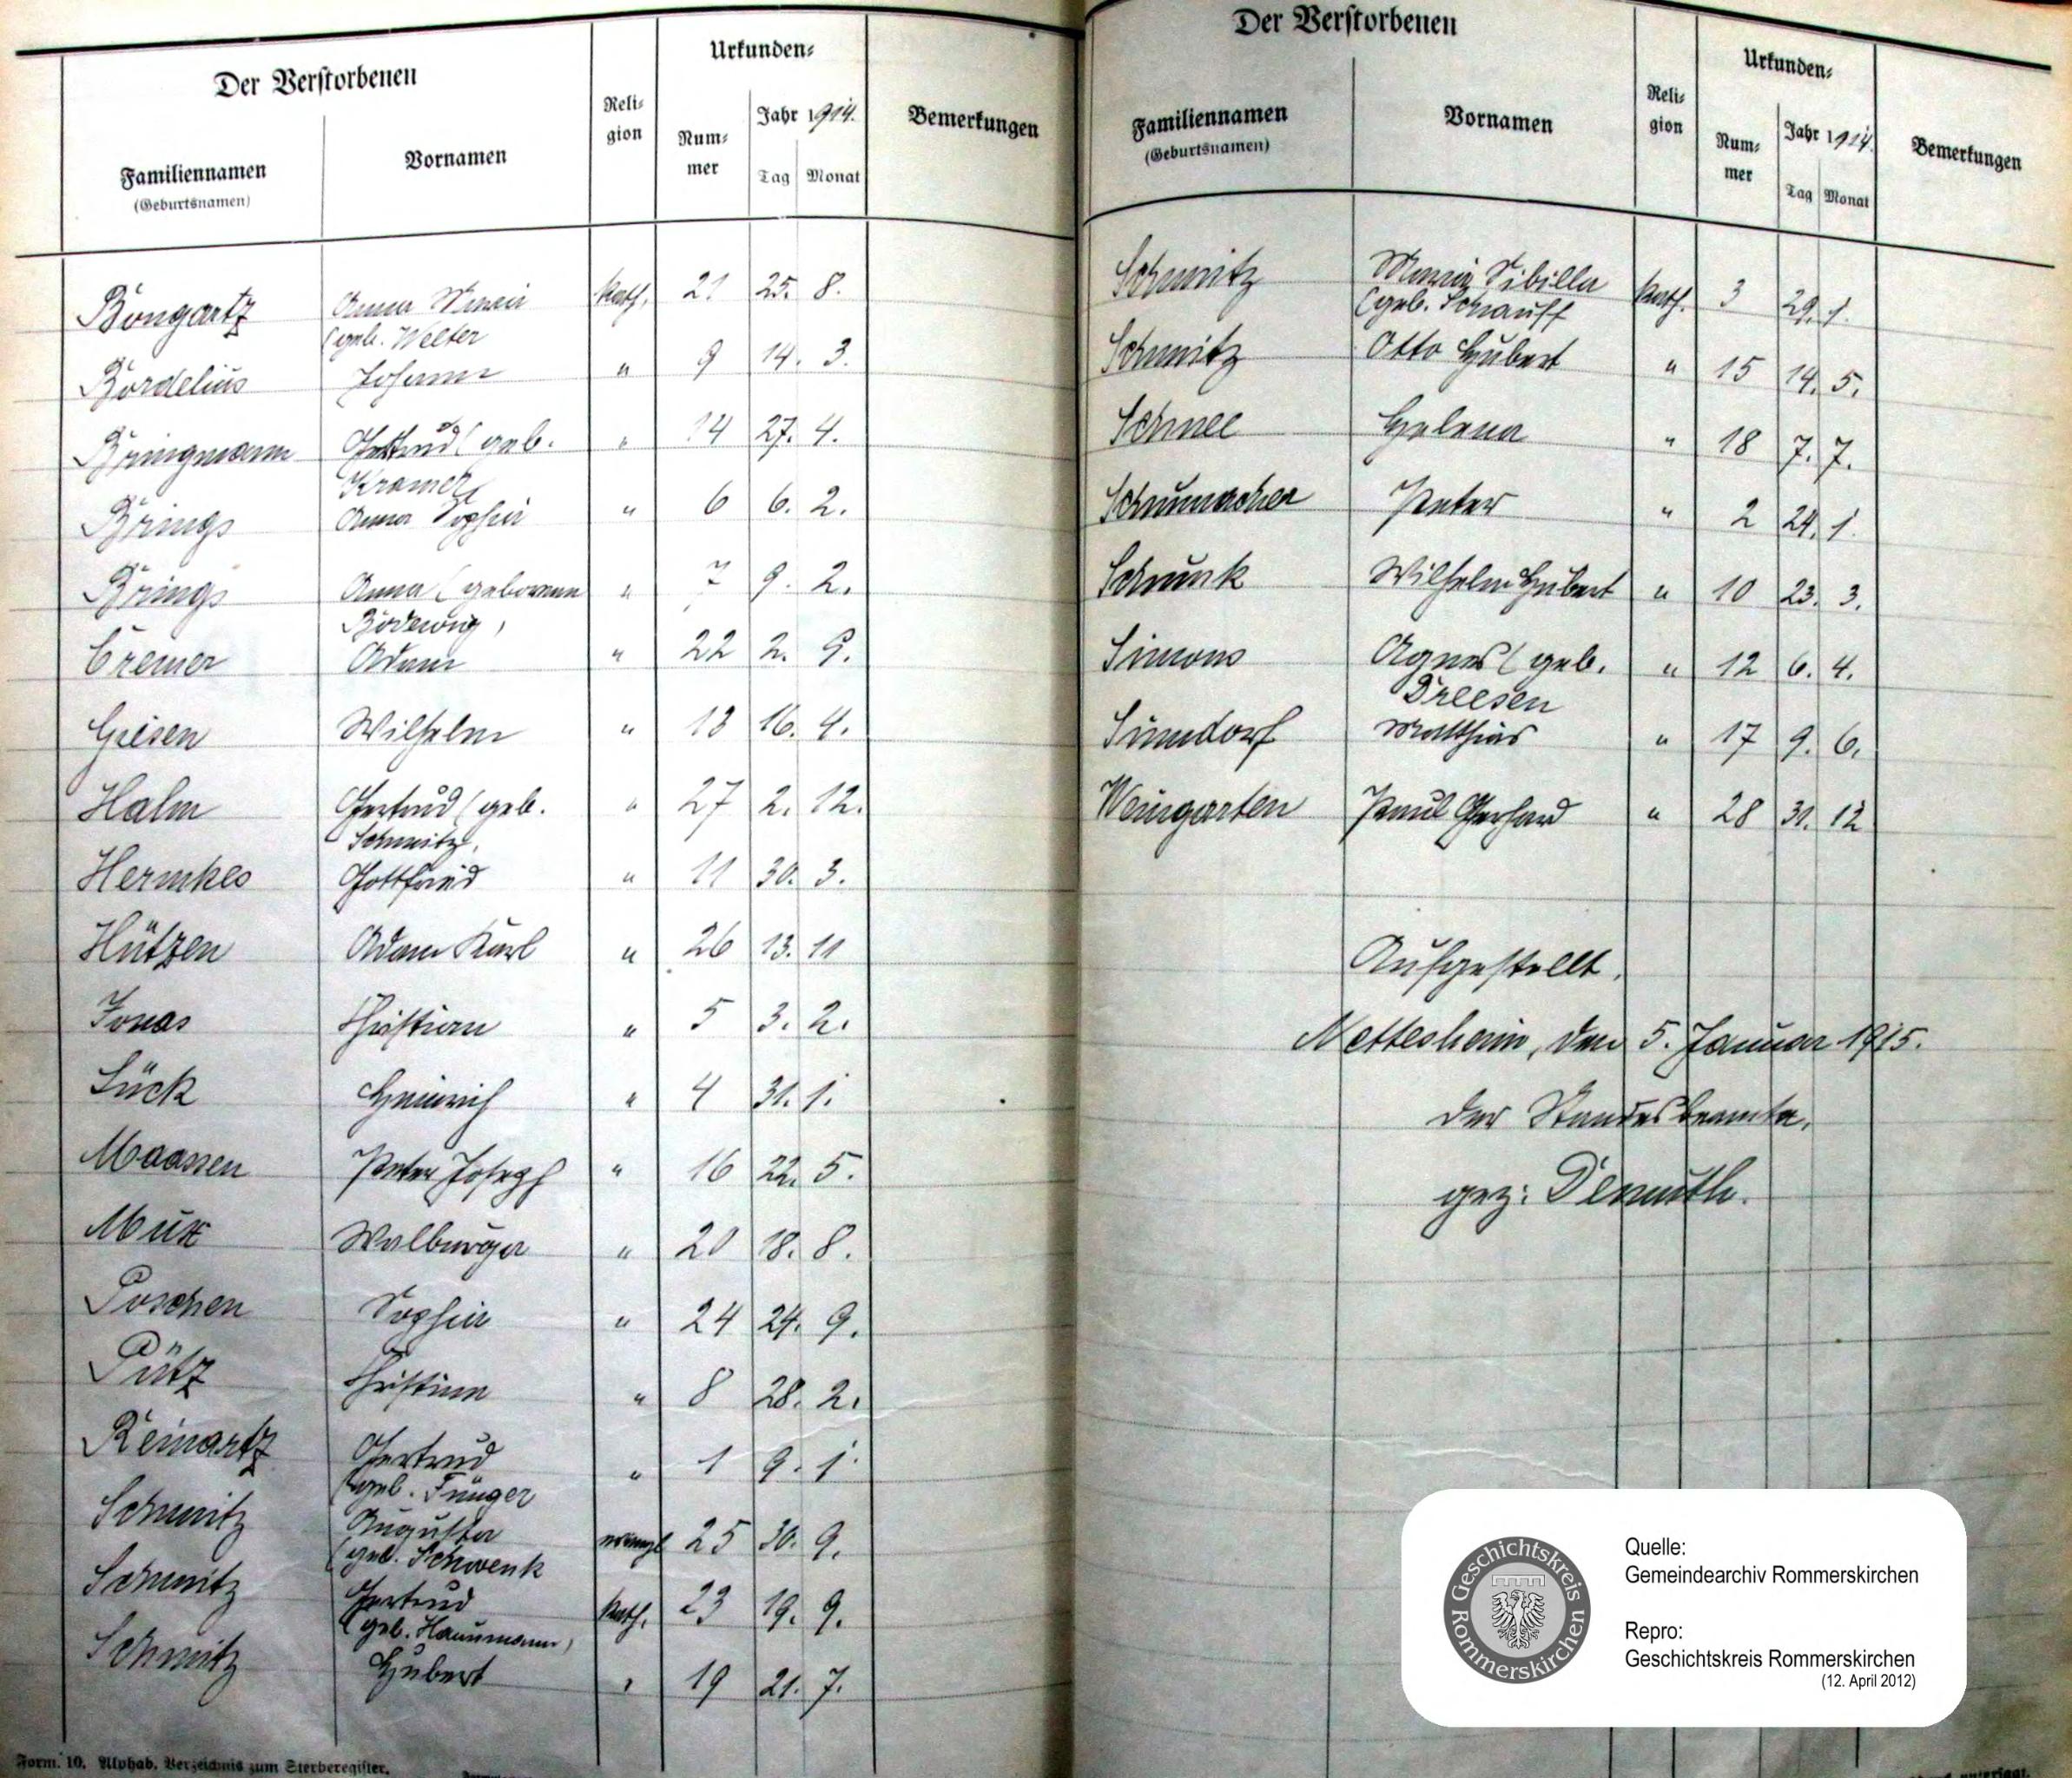 Der Verstorbenen
Urkunden=
Reli=
gion
Num=
mer
Jahr 1914.
Bemerkungen
Familiennamen
(Geburtsnamen)
Vornamen
Tag Monat
Bongartz Anna Maria Kath. 21 25. 8.
(geb. Welter
Bordelius Johann " 9 14. 3.
Bringmann Gertrud (geb. " 14 27. 4.
Kramer
Brings Anna Sophia " 6 6. 2.
Brings Anna (geborene " 7 9. 2.
Bödewig)
Cremer Adam " 22 2. 9.
Giesen Wilhelm " 13 16. 4.
Halm Gertrud (geb. " 27 2. 12.
Schmitz.
Hermkes Gottfried " 11 30. 3.
Hützen Adam Karl " 26 13. 11
Jonas Christian " 5 3. 2.
Lück Heinrich " 4 31. 1.
Maassen Peter Joseph " 16 22. 5.
Mux Walburga " 20 18. 8.
Poschen Sophia " 24 24. 9.
Pütz Christina " 8 28. 2.
Reinartz Gertrud " 1 9. 1.
(geb. Fünger
Schmitz Augusta evangl 25 30. 9.
(geb. Schwenk
Schmitz Gertrud Kath. 23 19. 9.
(geb. Hannmann)
Schmitz Hubert " 19 21. 7.
Form. 10. Alphab. Verzeichnis zum Sterberegister.
Der Verstorbenen
Urkunden=
Reli=
gion
Num=
mer
Jahr 1914.
Bemerkungen
Familiennamen
(Geburtsnamen)
Vornamen
Tag Monat
Schmitz Maria Sibilla Kath. 3 29. 1.
(geb. Schauff
Schmitz Otto Hubert " 15 14. 5.
Schnee Helena " 18 7. 7.
Schumacher Peter " 2 24. 1.
Schunk Wilhelm Hubert " 10 23. 3.
Simons Agnes (geb. " 12 6. 4.
Dreesen
Sündorf Matthias " 17 9. 6.
Weingarten Paul Gerhard " 28 31. 12
Aufgestellt.
Nettesheim, den 5. Januar 1915.
Der Standesbeamte,
gez: Demuth.
Geschichtskreis Rommerskirchen
Quelle:
Gemeindearchiv Rommerskirchen
Repro:
Geschichtskreis Rommerskirchen
(12. April 2012)